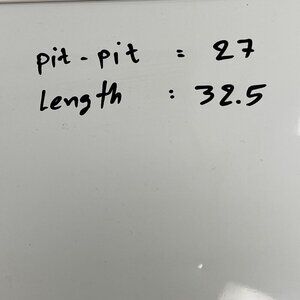 pit-pit : 27
length : 32.5